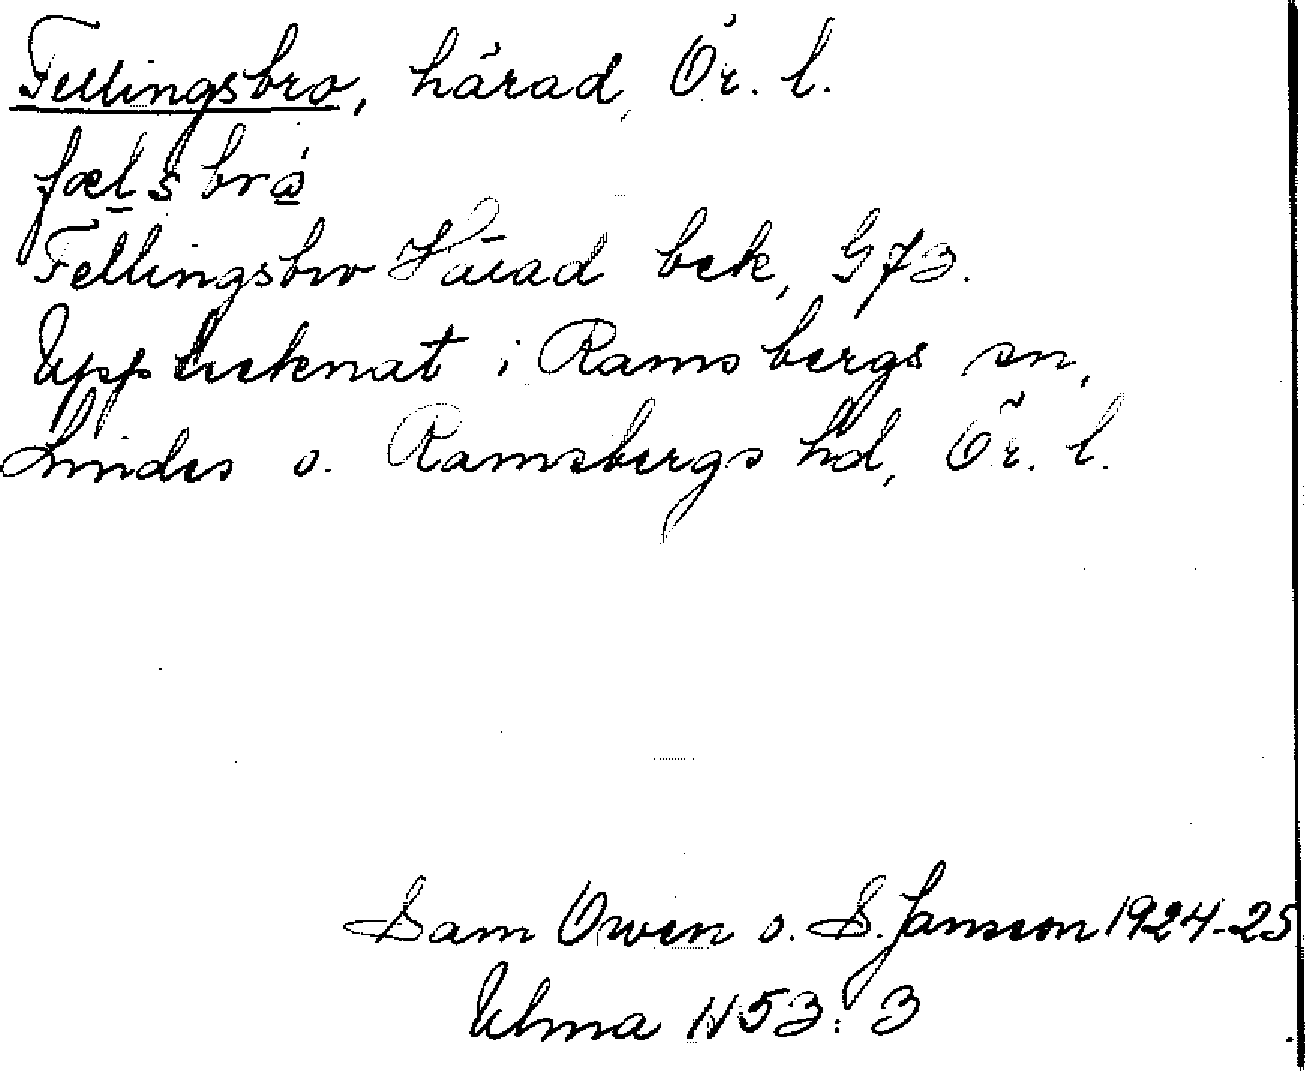 Fellingsbro, härad, Ör. l.
fælsbrå
Fellingsbro Härad bek, G73.
Upptecknat i Ramsbergs sn,
Lindes o. Ramsbergs hd, Ör. l.
Sam Owen o. S. Jansson 1924-25
Ulma 1153:3